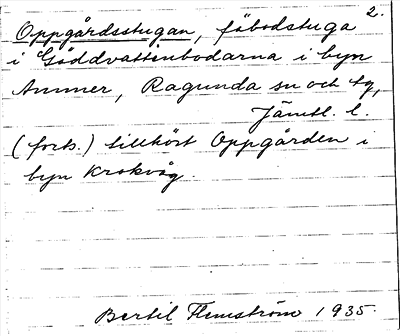 2.
Oppgårdsstugan, fäbodstuga
i Gäddvattenbodarna i byn
Ammer, Ragunda sn och tg,
Jämtl. l.
(forts.) tillhört Oppgården i
byn Krokvåg.
Bertil Flemström 1935.